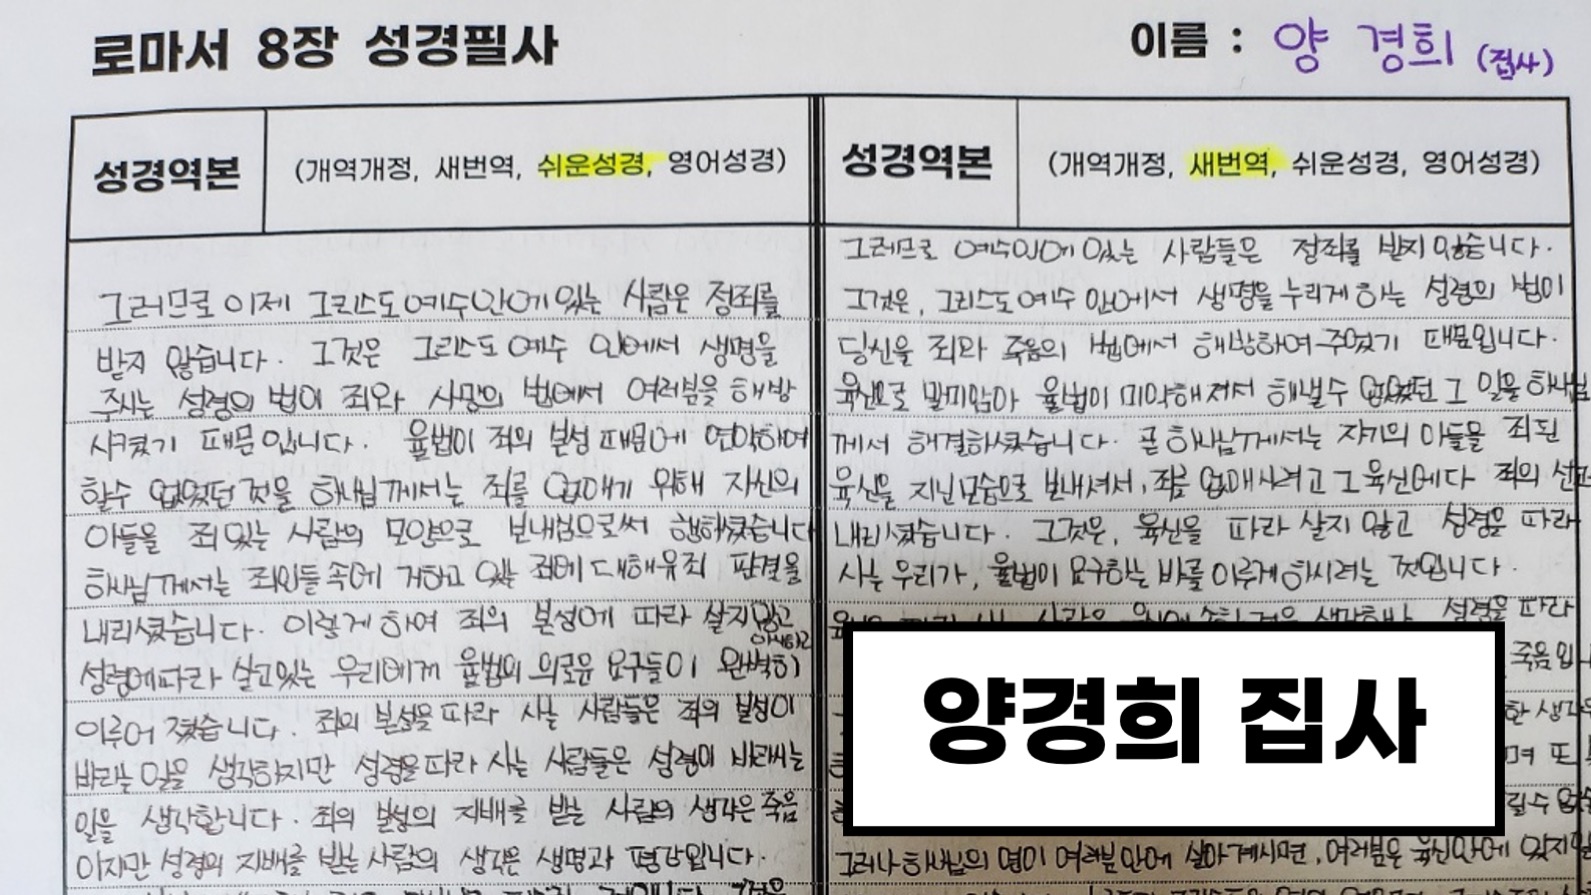 로마서 8장 성경필사
이름 : 양 경희 (집사)
성경역본
(개역개정, 새번역, 쉬운성경, 영어성경)
그러므로 이제 그리스도 예수 안에 있는 사람은 정죄를
받지 않습니다. 그것은 그리스도 예수 안에서 생명을
주시는 성령의 법이 죄와 사망의 법에서 여러분을 해방
시켰기 때문입니다. 율법이 죄의 본성 때문에 연약하여
할수 없었던 것을 하나님께서는 죄를 없애기 위해 자신의
아들을 죄 있는 사람의 모양으로 보내심으로써 행하셨습니다
하나님께서는 죄인들 속에 거하고 있는 죄에 대해 유죄 판결을
내리셨습니다. 이렇게 하여 죄의 본성에 따라 살지 않고
성령에 따라 살고있는 우리에게 율법의 의로운 요구들이 완벽히
이루어 졌습니다. 죄의 본성을 따라 사는 사람들은 죄의 본성이
바라는 일을 생각하지만 성령을 따라 사는 사람들은 성령이 바라시는
일을 생각합니다. 죄의 본성의 지배를 받는 사람의 생각은 죽음
이지만 성령의 지배를 받는 사람의 생각은 생명과 평강입니다.
성경역본
(개역개정, 새번역, 쉬운성경, 영어성경)
그러므로 예수안에 있는 사람들은 정죄를 받지 않습니다.
그것은, 그리스도 예수 안에서 생명을 누리게 하는 성령의 법이
당신을 죄와 죽음의 법에서 해방하여 주었기 때문입니다.
육신으로 말미암아 율법이 미약해져서 해낼수 없었던 그 일을 하나님
께서 해결하셨습니다. 곧 하나님께서는 자기의 아들을 죄된
육신을 지닌 모습으로 보내셔서, 죄를 없애시려고 그 육신에다 죄의 선고
내리셨습니다. 그것은, 육신을 따라 살지 않고 성령을 따라
사는 우리가, 율법이 요구하는 바를 이루게 하시려는 것입니다.
성령을 따라
죽음입
한 생각
며 또
길수 없
그러나 하나님의 영이 여러분 안에 살아계시면, 여러분은 육신안에 있지
양경희 집사